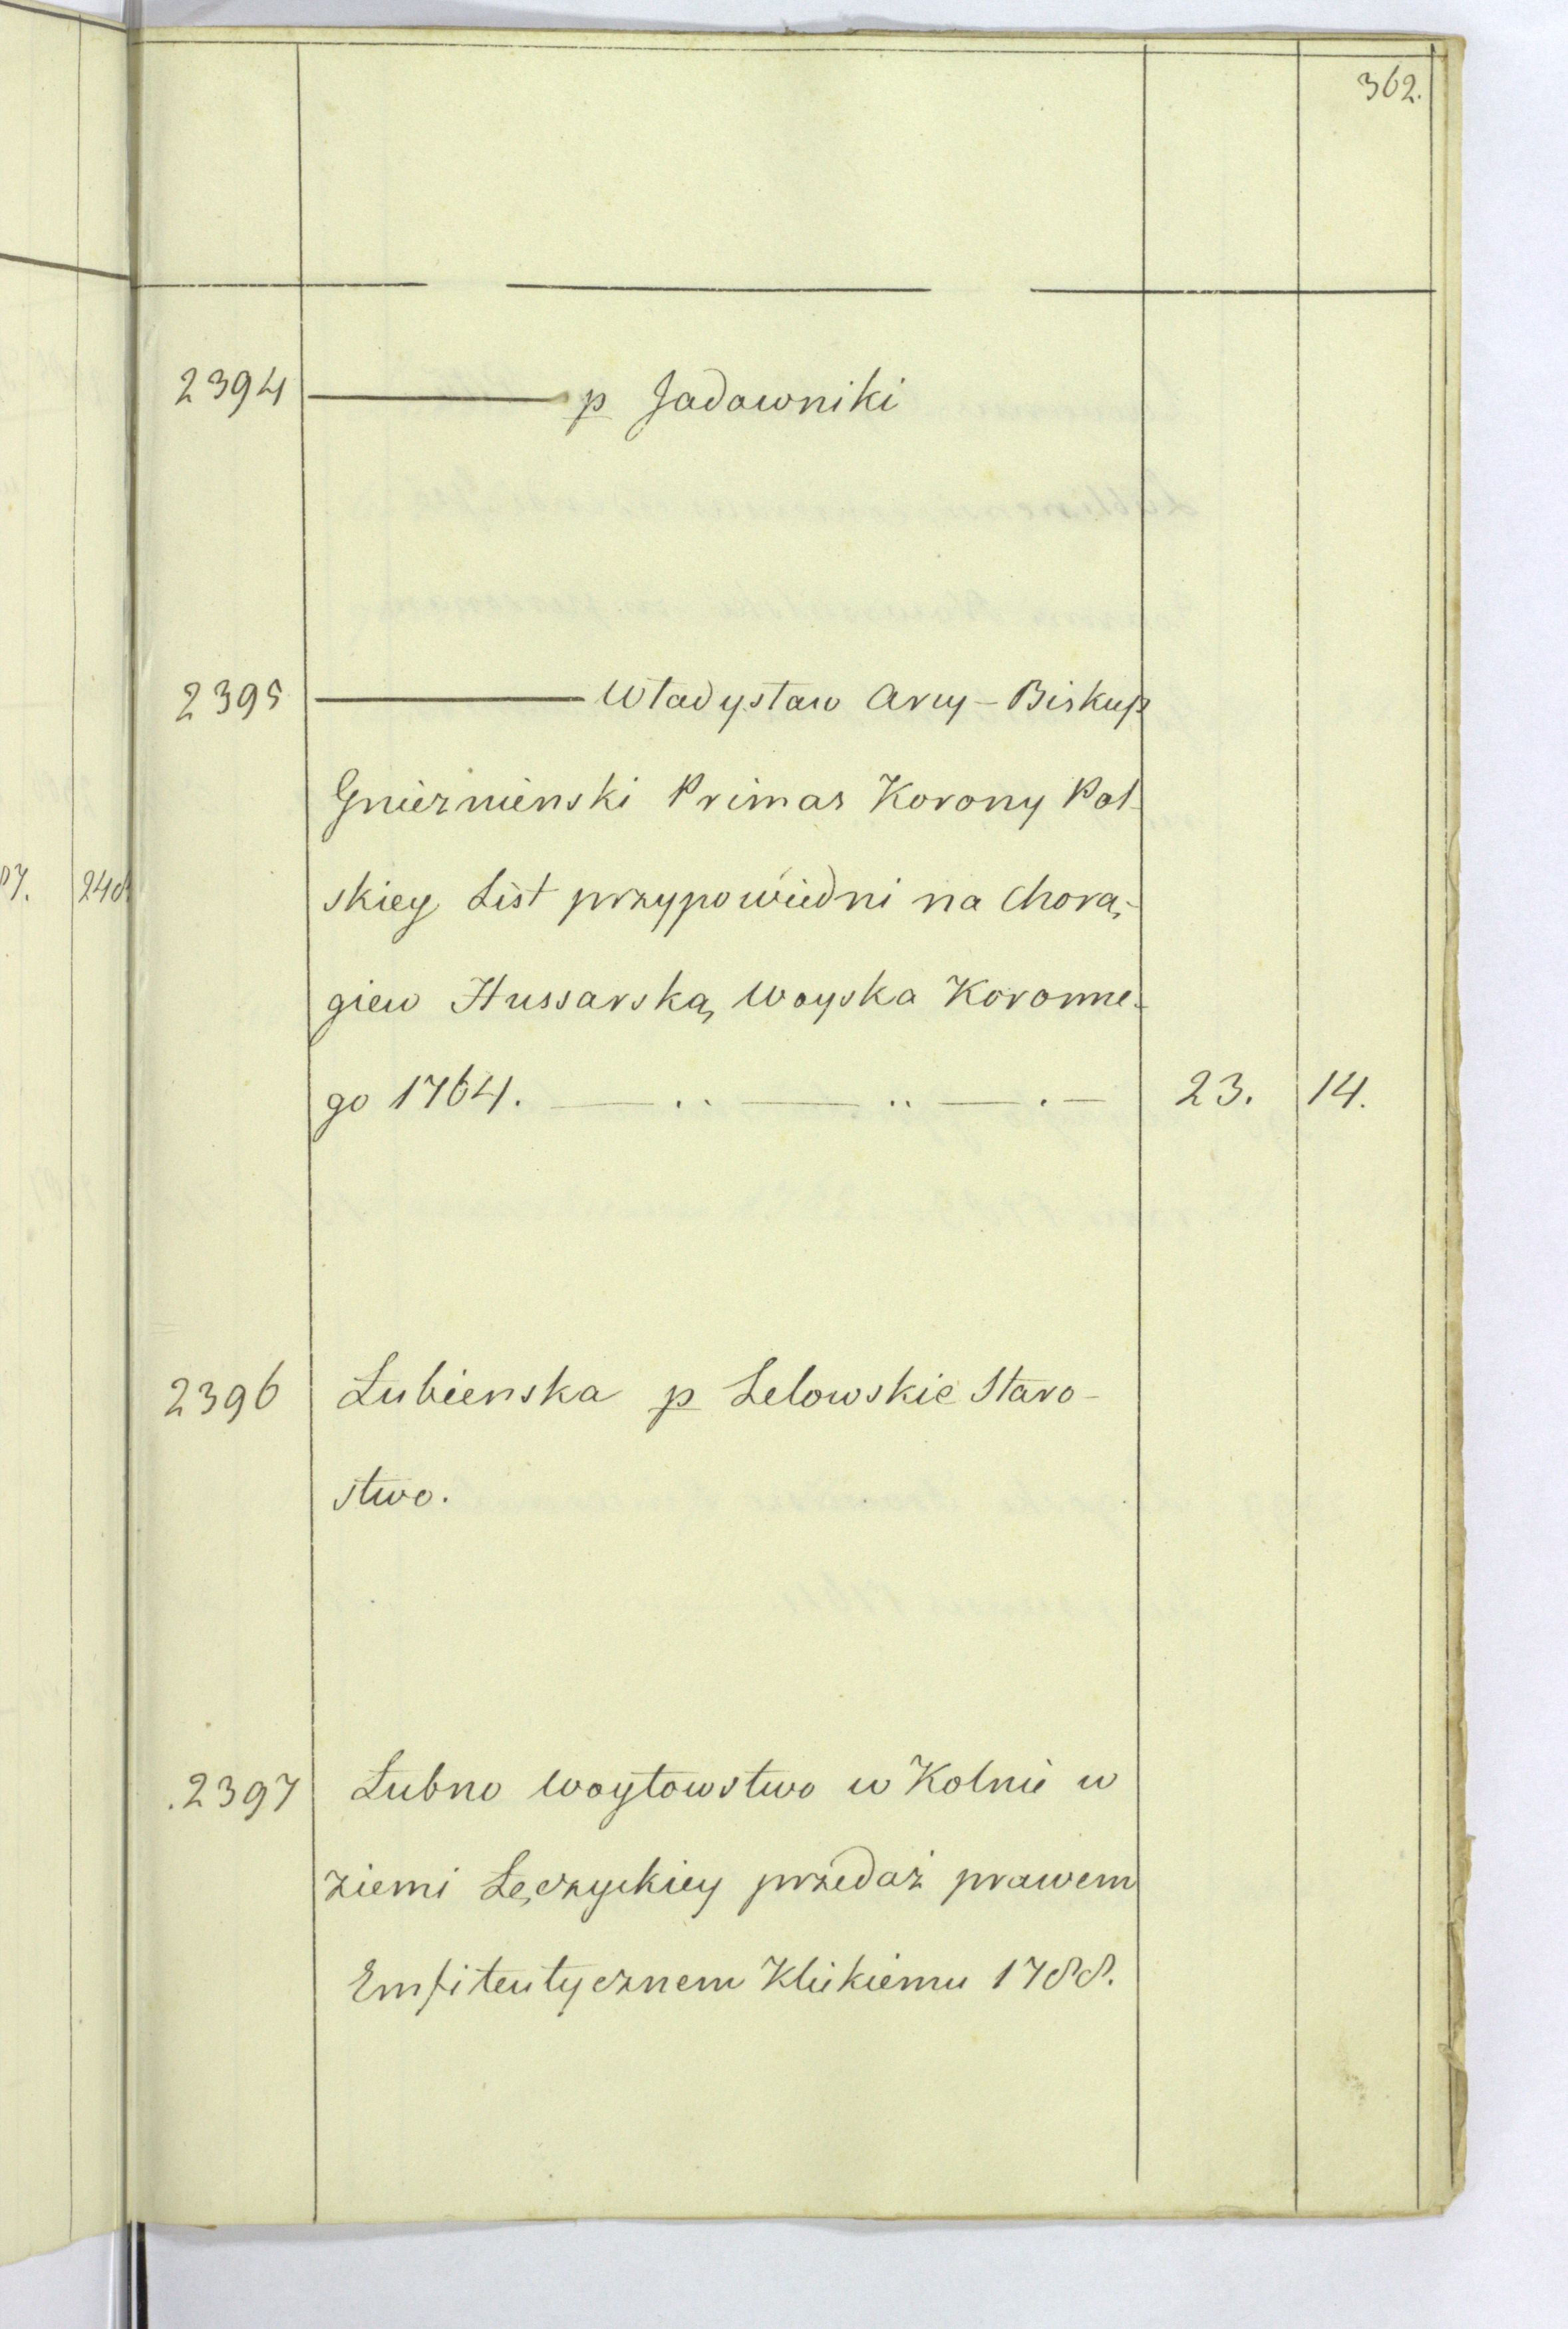 362.
2394 ——— p Jadowniki
2395 ——— Władysław Arcy-Biskup
Gnieznienski Primas Korony Pol-
skiey List przypowiedni na Chorą-
giew Hussarską Woyska Koronne-
go 1764. — .. — .. — . — 23. 14.
2396 Łubienska p Lelowskie Staro-
stwo.
.2397 Łubno Woytowstwo w Kolnie w
ziemi Łęczyckiey przedaż prawem
Emfiteutycznem Klickiemu 1788.
240